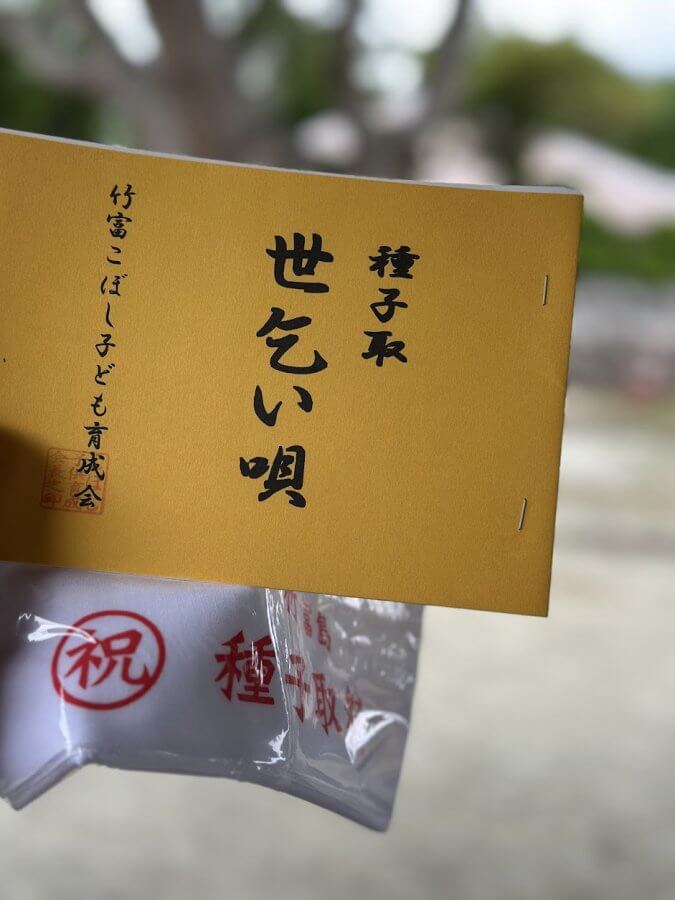 種子取
世乞い唄
竹富こぼし子ども育成会
竹富島
祝 種子取